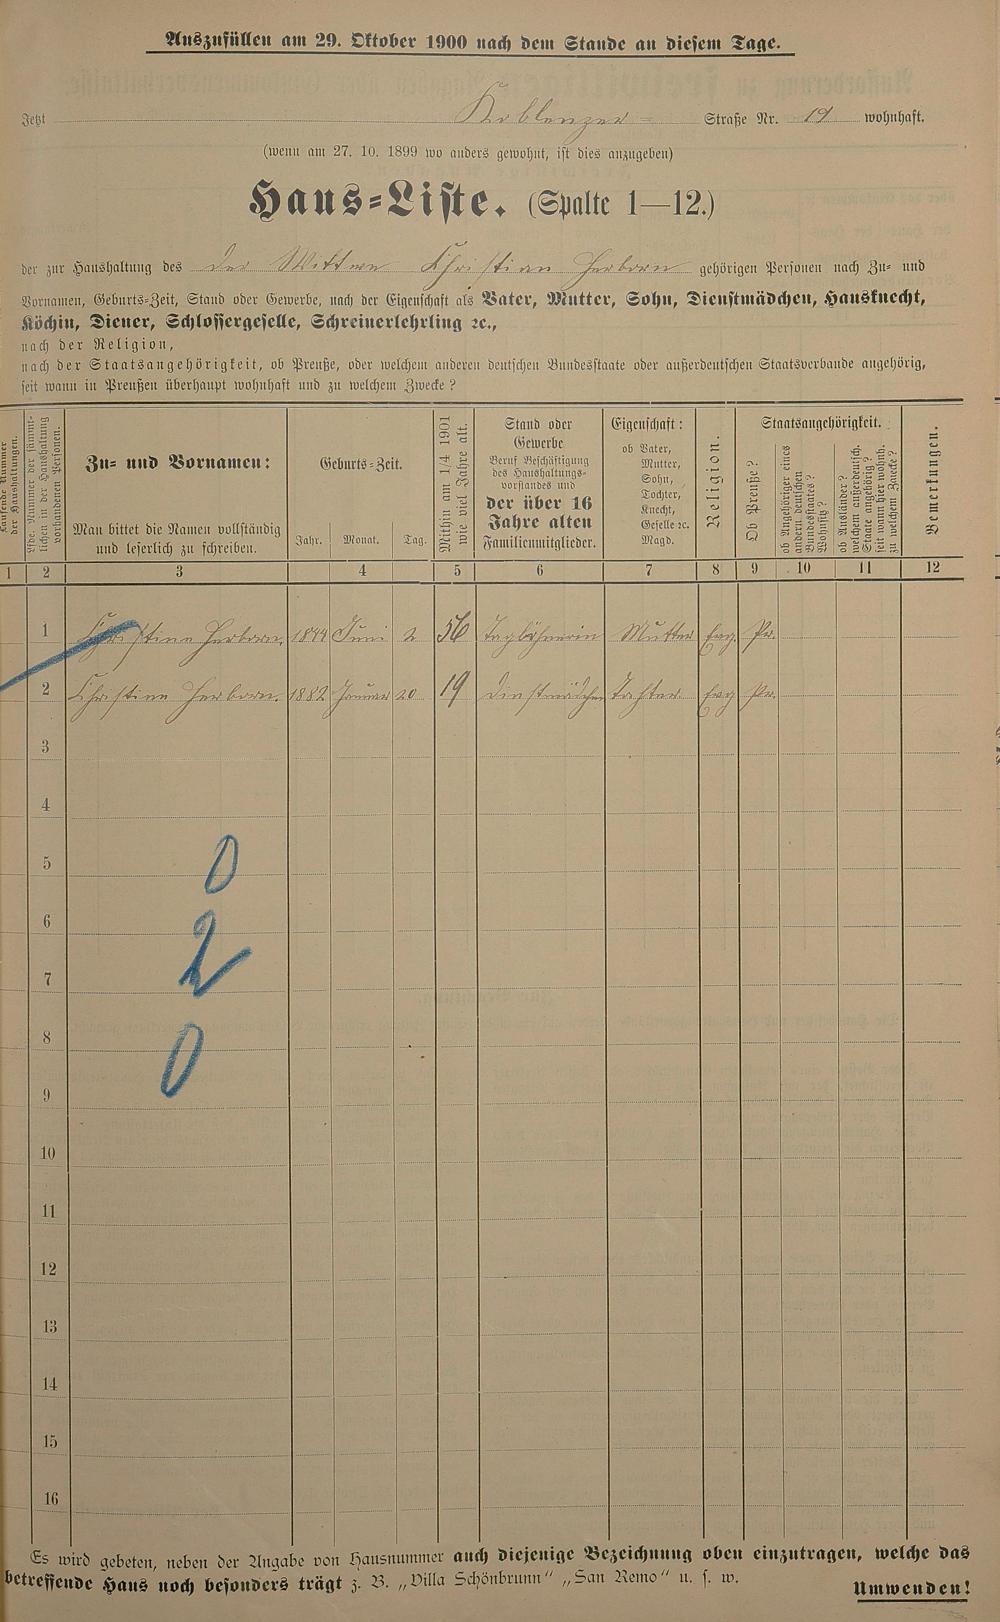 Auszufüllen am 29. Oktober 1900 nach dem Stande an diesem Tage.
Jetzt Koblenzer- Straße Nr. 19 wohnhaft.
(wenn am 27. 10. 1899 wo anders gewohnt, ist dies anzugeben)
Haus-Liste. (Spalte 1—12.)
der zur Haushaltung des der Wittwe Christian Herborn gehörigen Personen nach Zu- und
Vornamen, Geburts-Zeit, Stand oder Gewerbe, nach der Eigenschaft als Vater, Mutter, Sohn, Dienstmädchen, Hausknecht,
Köchin, Diener, Schlossergeselle, Schreinerlehrling ꝛc.,
nach der Religion,
nach der Staatsangehörigkeit, ob Preuße, oder welchem anderen deutschen Bundesstaate oder außerdeutschen Staatsverbande angehörig,
seit wann in Preußen überhaupt wohnhaft und zu welchem Zwecke?
Laufende Nummer
der Haushaltungen.
Lfde. Nummer der sämmt-
lichen in der Haushaltung
vorhandenen Personen.
Zu- und Vornamen:
Man bittet die Namen vollständig
und leserlich zu schreiben.
Geburts-Zeit.
Jahr. Monat. Tag.
Mithin am 1/4 1901
wie viel Jahre alt.
Stand oder
Gewerbe
Beruf Beschäftigung
des Haushaltungs-
vorstandes und
der über 16
Jahre alten
Familienmitglieder.
Eigenschaft:
ob Vater,
Mutter,
Sohn,
Tochter,
Knecht,
Geselle ꝛc.
Magd.
Religion.
Staatsangehörigkeit.
Ob Preuße?
ob Angehöriger eines
andern deutschen
Bundesstaates?
Wohnsitz?
ob Ausländer?
welchem außerdeutsch.
Staate angehörig?
seit wann hier wohnh.
zu welchem Zwecke?
Bemerkungen.
1 2 3 4 5 6 7 8 9 10 11 12
1 Christine Herborn. 1844 Juni 2 56 Taglöhnerin Mutter Evg. Pr.
2 Christine Herborn. 1882 Januar 20 19 Dienstmädchen Tochter Evg Pr.
3
4
5
0
6
2
7
8
0
9
10
11
12
13
14
15
16
Es wird gebeten, neben der Angabe von Hausnummer auch diejenige Bezeichnung oben einzutragen, welche das
betreffende Haus noch besonders trägt z. B. „Villa Schönbrunn“ „San Remo“ u. s. w.
Umwenden!